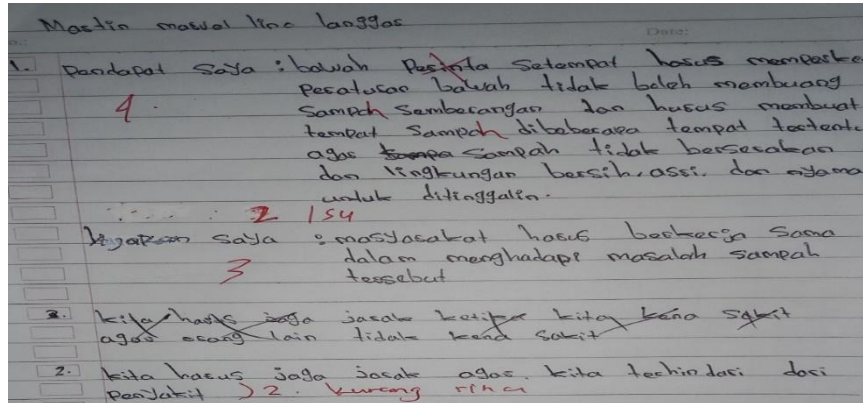 Mastin maswol line langgas
Date:
1. Pendapat saya : bawah setempat hasus mempeske
4. pesatusan bawah tidak boleh membuang
sampah sembasangan dan husus membuat
tempat sampah dibebesapa tempat testent
agas sampah tidak bersesakan
dan lingkungan bessih, assi. dan nyama
untuk ditinggalin.
2 Isu
saya : masyasakat hasus beskesja sama
3 dalam menghadapi masalah sampah
tessebut
3. kita hasus jaga jasak ketika kita kena sakit
agas osang lain tidak kena sakit
2. kita hasus jaga jasak agas. kita techindasi dasi
penyakit } 2. kurang rinci